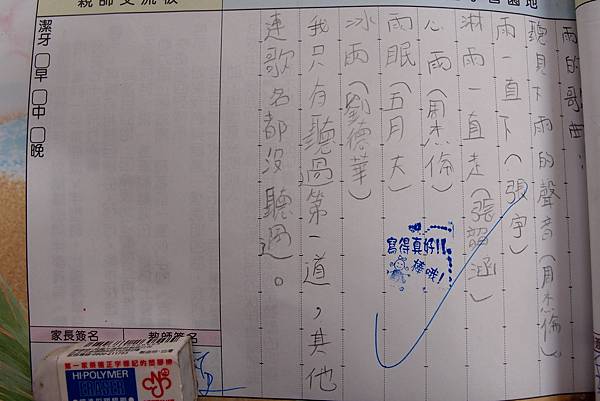 親師交流板
潔牙 □早 □中 □晚
雨的歌曲:
聽見下雨的聲音(周杰倫)
雨一直下(張宇)
淋雨一直走(張韶涵)
心雨(周杰倫)
雨眠(五月天)
冰雨(劉德華)
我只有聽過第一道,其他
連歌名都沒聽過。
寫得真好!!
棒哦!
家長簽名
教師簽名
HI-POLYMER
ERASER